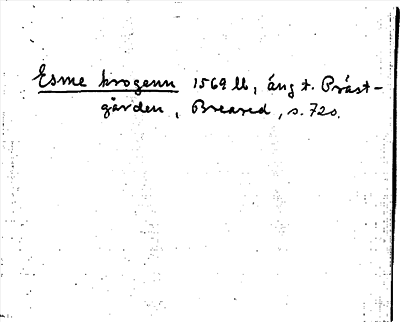 Esme krogenn 1569 lb, äng t. Präst-
gården, Breared, s. 720.